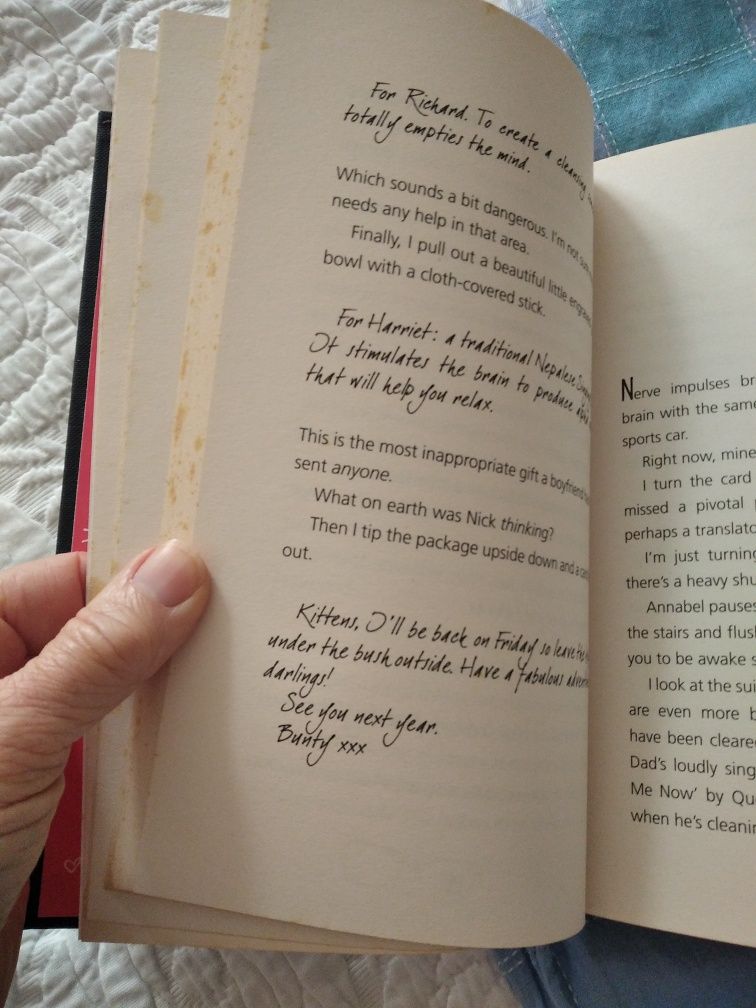 For Richard. To create a cleansing
totally empties the mind.
Which sounds a bit dangerous. I'm not
needs any help in that area.
Finally, I pull out a beautiful little
bowl with a cloth-covered stick.
For Harriet: a traditional Nepalese
It stimulates the brain to produce
that will help you relax.
This is the most inappropriate gift a boyfriend
sent anyone.
What on earth was Nick thinking?
Then I tip the package upside down and a
out.
Kittens, I'll be back on Friday so leave the
under the bush outside. Have a fabulous
darlings!
See you next year.
Bunty xxx
Nerve impulses
brain with the same
sports car.
Right now, mine
I turn the card
missed a pivotal
perhaps a
I'm just turning
there's a heavy
Annabel pauses
the stairs and
you to be awake
I look at the
are even more
have been cleared
Dad's loudly
Me Now' by
when he's